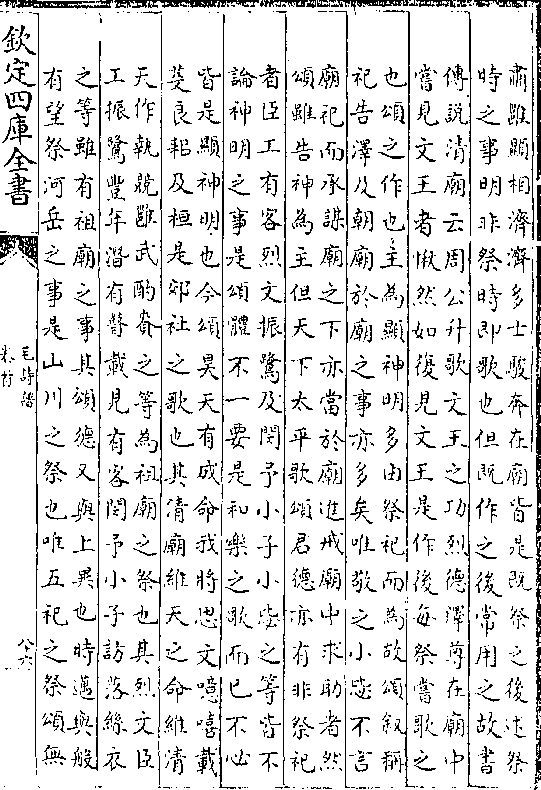 肅雝顯相濟濟多士駿奔在廟皆是既祭之後述祭
時之事明非祭時即歌也但既作之後常用之故書
傳說清廟云周公升歌文王之功烈德澤尊在廟中
嘗見文王者愀然如復見文王是作後每祭嘗歌之
也頌之作也主為顯神明多由祭祀而為故頌叙稱
祀告澤及朝廟於廟之事亦多矣唯敬之小毖不言
廟祀而承謀廟之下亦當於廟進戒廟中求助者然
頌雖告神為主但天下太平歌頌君德亦有非祭祀
者臣工有客烈文振鷺及閔予小子小毖之等皆不
論神明之事是頌體不一要是和樂之歌而已不必
皆是顯神明也今頌昊天有成命我將思文噫嘻載
芟良耜及桓是郊社之歌也其清廟維天之命維清
天作執競雝武酌賚之等為祖廟之祭也其烈文臣
工振鷺豐年潛有瞽載見有客閔予小子訪落絲衣
之等雖有祖廟之事其頌德又與上異也時邁與般
有望祭河岳之事是山川之祭也唯五祀之祭頌無
欽定四庫全書
毛詩譜